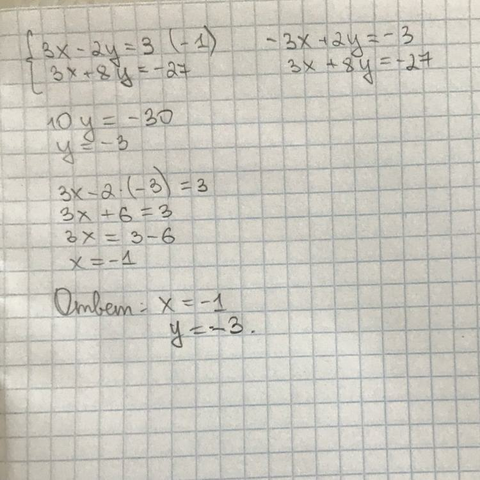 3x - 2y = 3 (-1)
3x + 8y = -27
-3x + 2y = -3
3x + 8y = -27
10y = -30
y = -3
3x - 2·(-3) = 3
3x + 6 = 3
3x = 3 - 6
x = -1
Ответ: x = -1
y = -3.